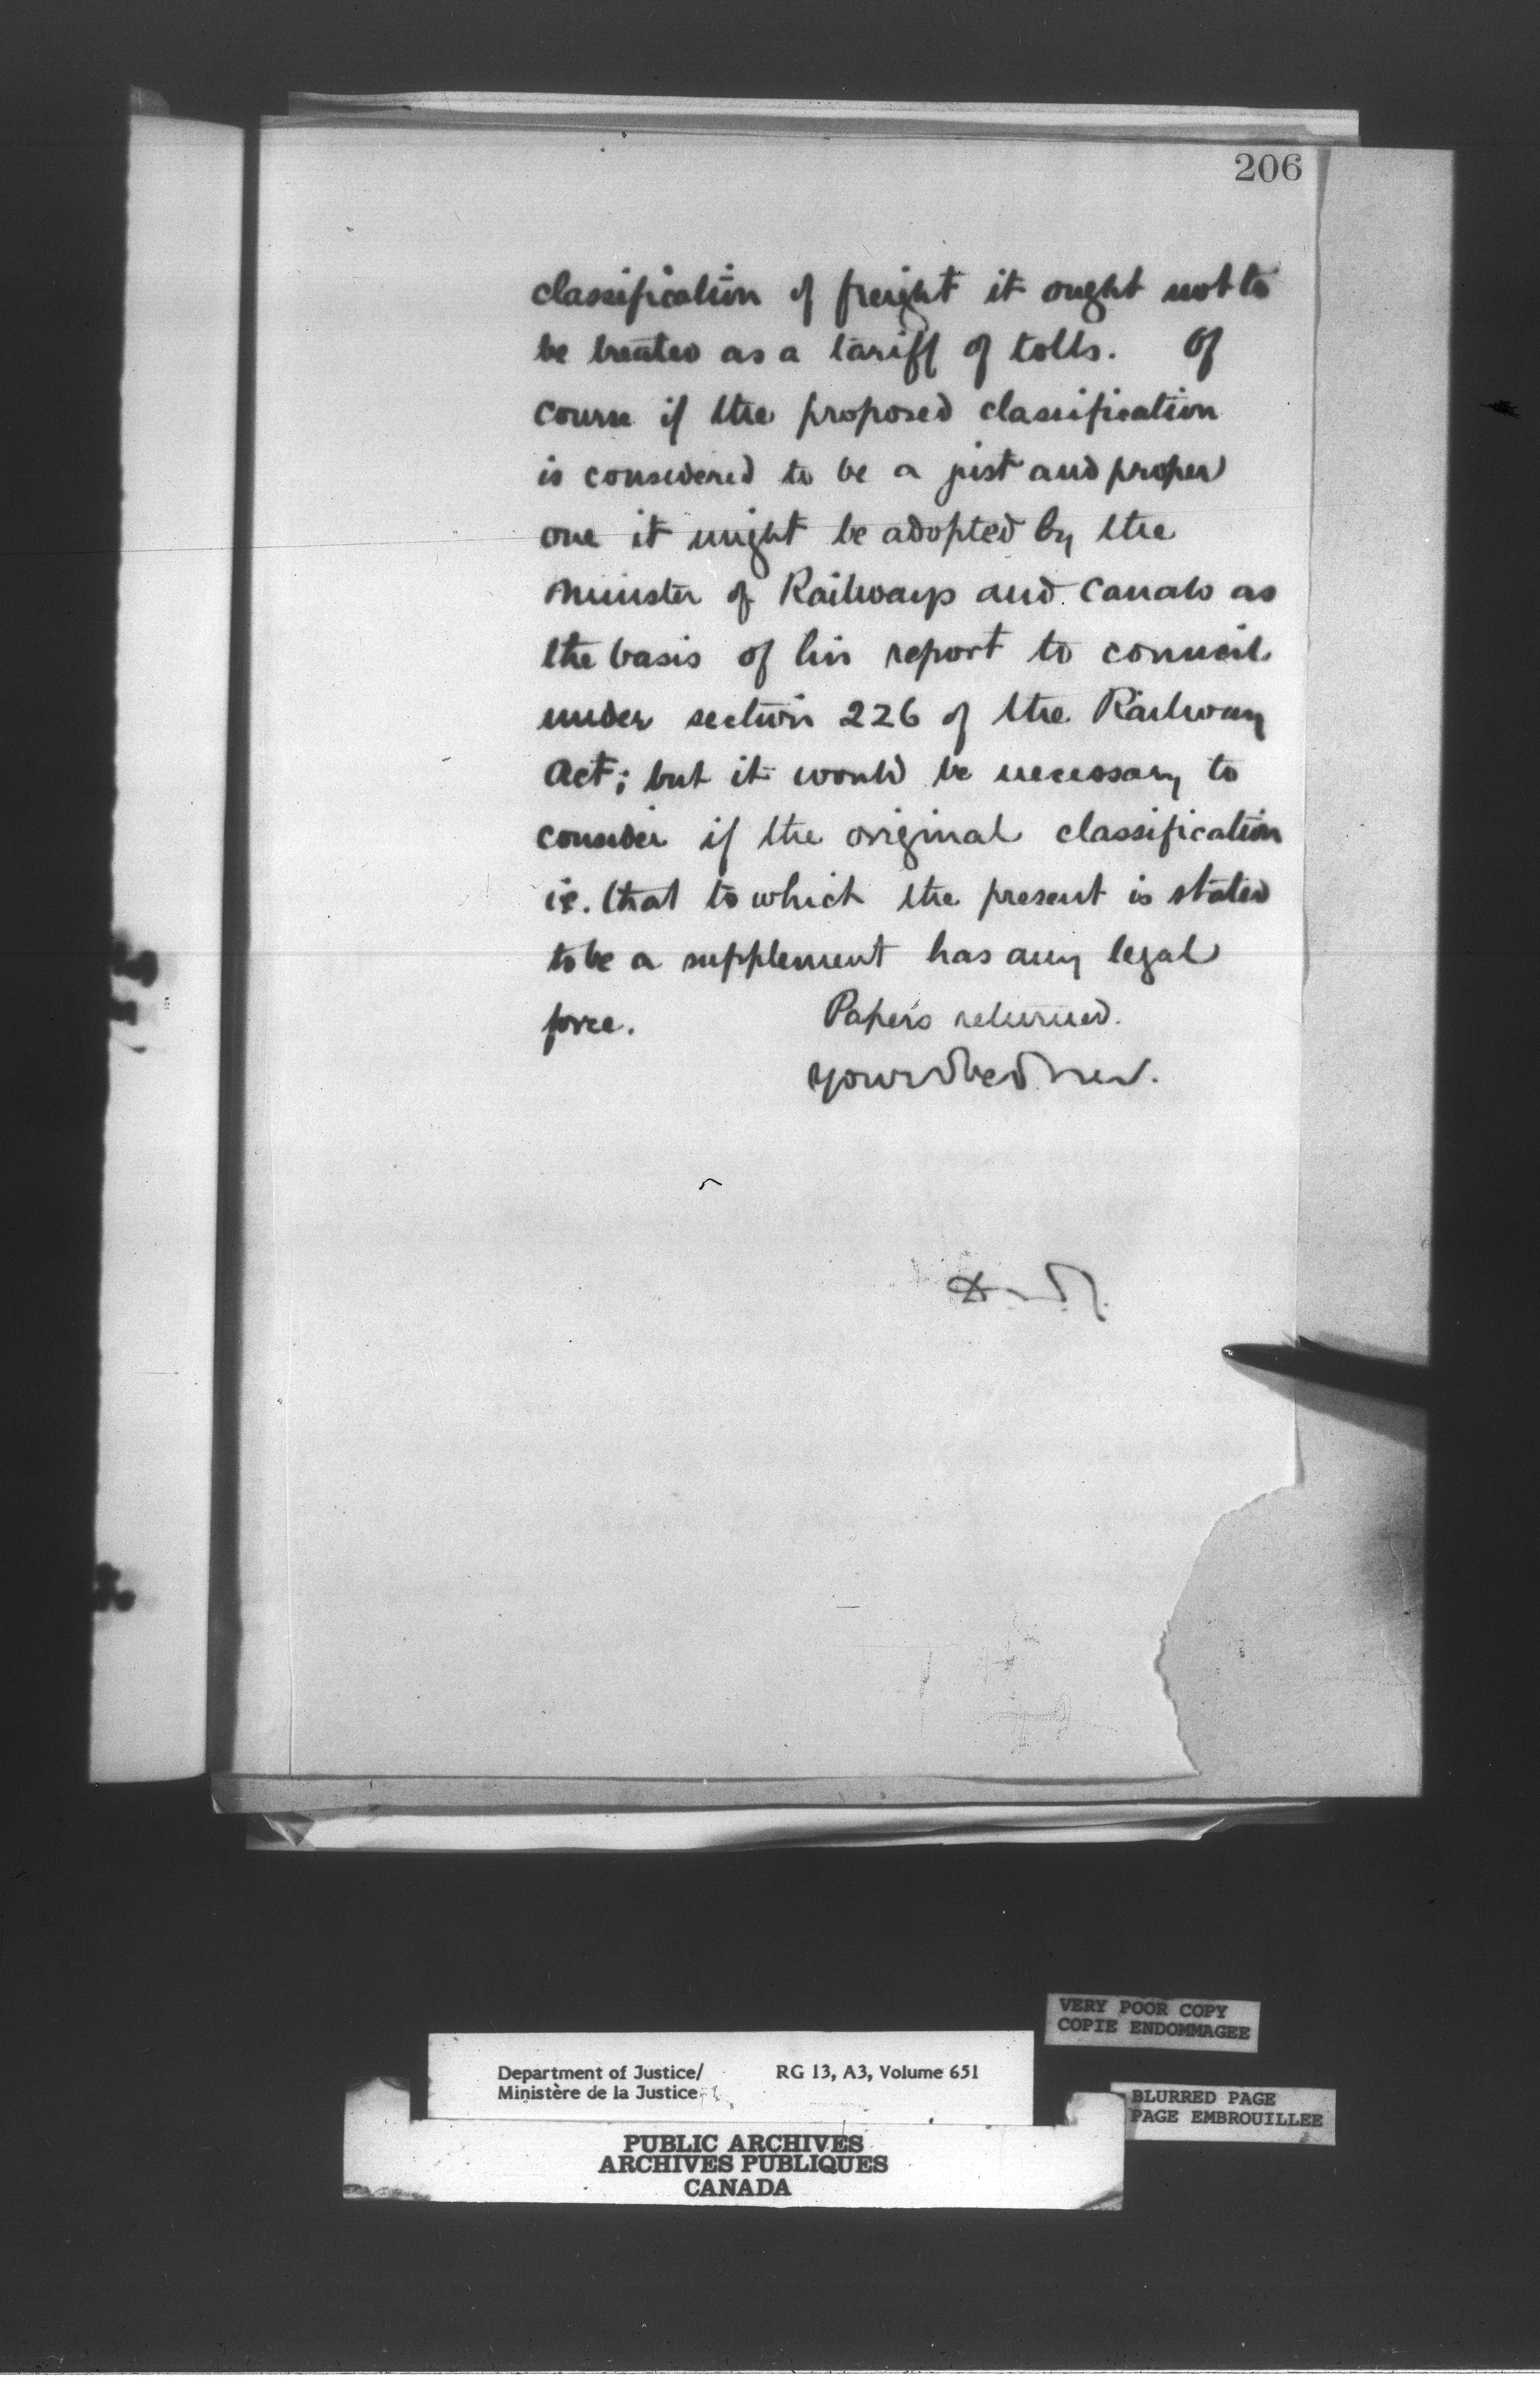 206
classification of freight it ought not to
be treated as a tariff of tolls. Of
course if the proposed classification
is considered to be a just and proper
one it might be adopted by the
Minister of Railways and Canals as
the basis of his report to council
under section 226 of the Railway
Act; but it would be necessary to
consider if the original classification
ie. that to which the present is stated
to be a supplement has any legal
force. Papers returned.
VERY POOR COPY
COPIE ENDOMMAGEE
Department of Justice/ RG 13, A3, Volume 651
Ministère de la Justice
BLURRED PAGE
PAGE EMBROUILLEE
PUBLIC ARCHIVES
ARCHIVES PUBLIQUES
CANADA